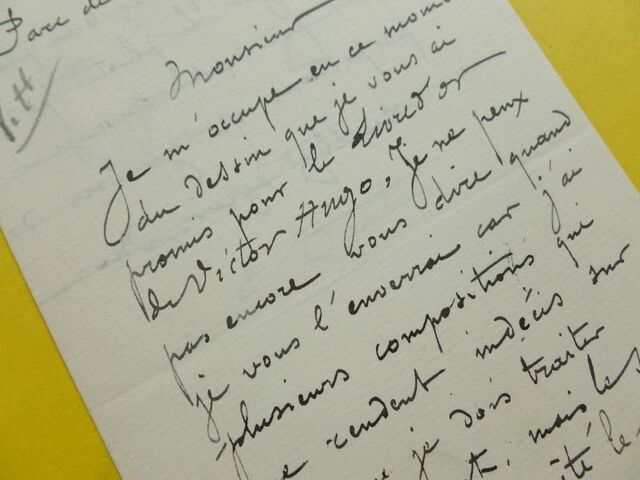 Parc de
V. H
Monsieur
Je m'occupe en ce mome
du dessin que je vous ai
promis pour le Livre d'or
de Victor Hugo, Je ne peux
pas encore vous dire quand
je vous l'enverrai car j'ai
plusieurs compositions qui
rendent indécis sur
je dois traiter
t, mais le
té le